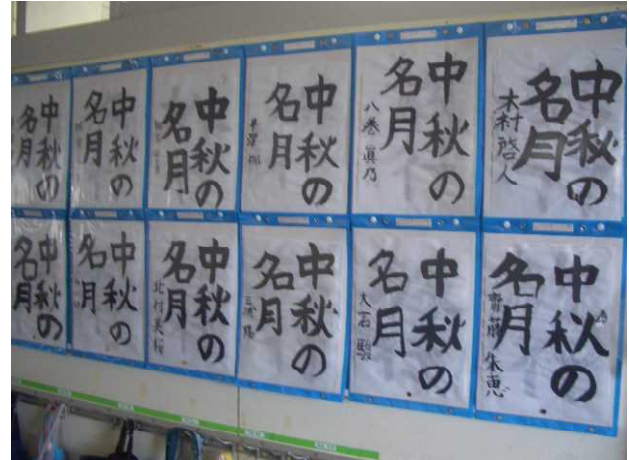 中秋の
名月
中秋の
名月
中秋の
名月
中秋の
名月
中秋の
名月
八巻 眞乃
中秋の
名月
木村啓人
中秋の
名月
中秋の
名月
中秋の
名月
北村美桜
中秋の
名月
中秋の
名月
大石 駿
中秋の
名月
齋藤 朱恵